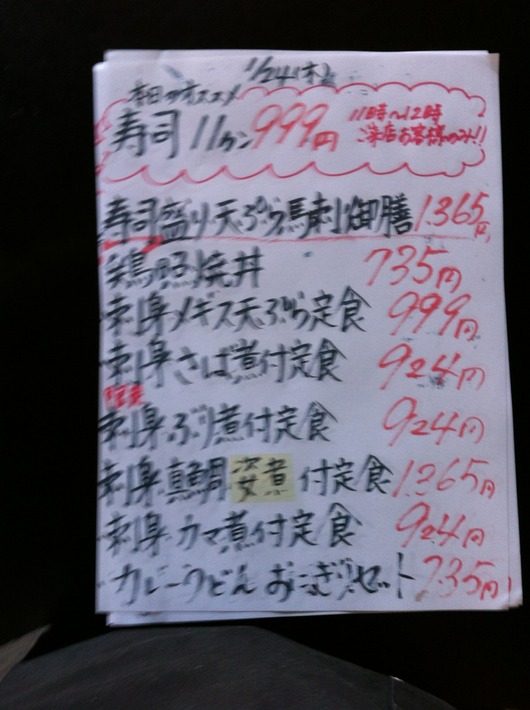 1/24(木)
本日のオススメ
寿司11カン999円
11時~12時
ご来店お客様のみ!!
寿司盛り天ぷら馬刺御膳1.365円
鶏照焼丼 735円
刺身メギス天ぷら定食 999円
刺身さば煮付定食 924円
限定
刺身ぶり煮付定食 924円
刺身真鯛姿煮付定食1.365円
刺身カマ煮付定食 924円
カレーうどんおにぎりセット735円